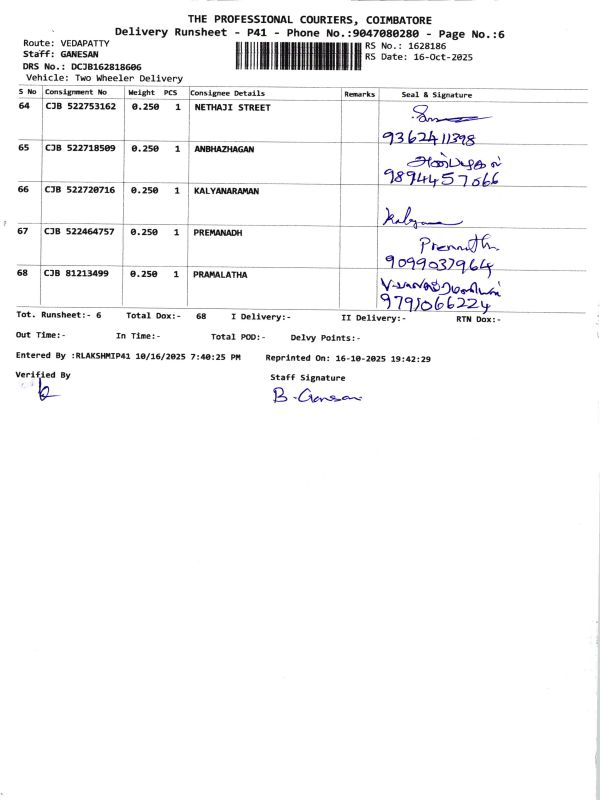 THE PROFESSIONAL COURIERS, COIMBATORE
Delivery Runsheet - P41 - Phone No.:9047080280 - Page No.:6
Route: VEDAPATTY
Staff: GANESAN
DRS No.: DCJB162818606
Vehicle: Two Wheeler Delivery
RS No.: 1628186
RS Date: 16-Oct-2025
S No Consignment No Weight PCS Consignee Details Remarks Seal & Signature
64 CJB 522753162 0.250 1 NETHAJI STREET
9362411398
65 CJB 522718509 0.250 1 ANBHAZHAGAN
அன்பழகன்
9894457066
66 CJB 522720716 0.250 1 KALYANARAMAN
67 CJB 522464757 0.250 1 PREMANADH
9099037964
68 CJB 81213499 0.250 1 PRAMALATHA
9791066224
Tot. Runsheet:- 6 Total Dox:- 68 I Delivery:- II Delivery:- RTN Dox:-
Out Time:- In Time:- Total POD:- Delvy Points:-
Entered By :RLAKSHMIP41 10/16/2025 7:40:25 PM Reprinted On: 16-10-2025 19:42:29
Verified By Staff Signature
B. Ganesan